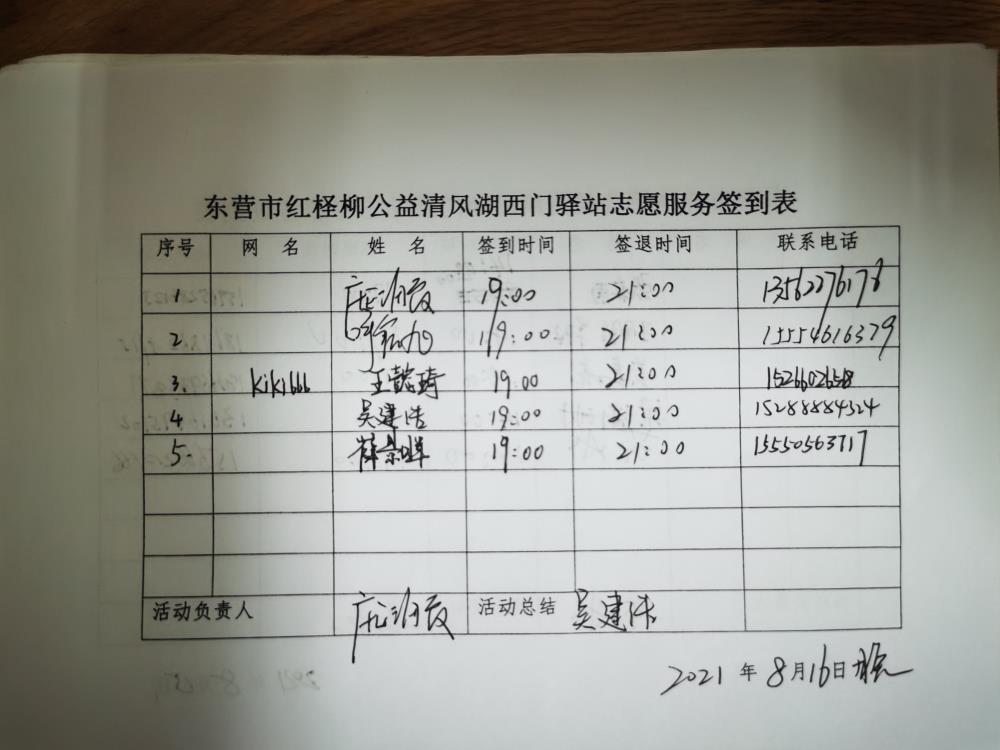 东营市红柽柳公益清风湖西门驿站志愿服务签到表
序号 网 名 姓 名 签到时间 签退时间 联系电话
1 19:00 21:00 13562276178
2 19:00 21:00 15554616379
3. kiki666 王懿琦 19:00 21:00 15266026548
4 吴建浩 19:00 21:00 15288884324
5. 薛景晖 19:00 21:00 15550563717
活动负责人 活动总结 吴建浩
2021 年 8月16日